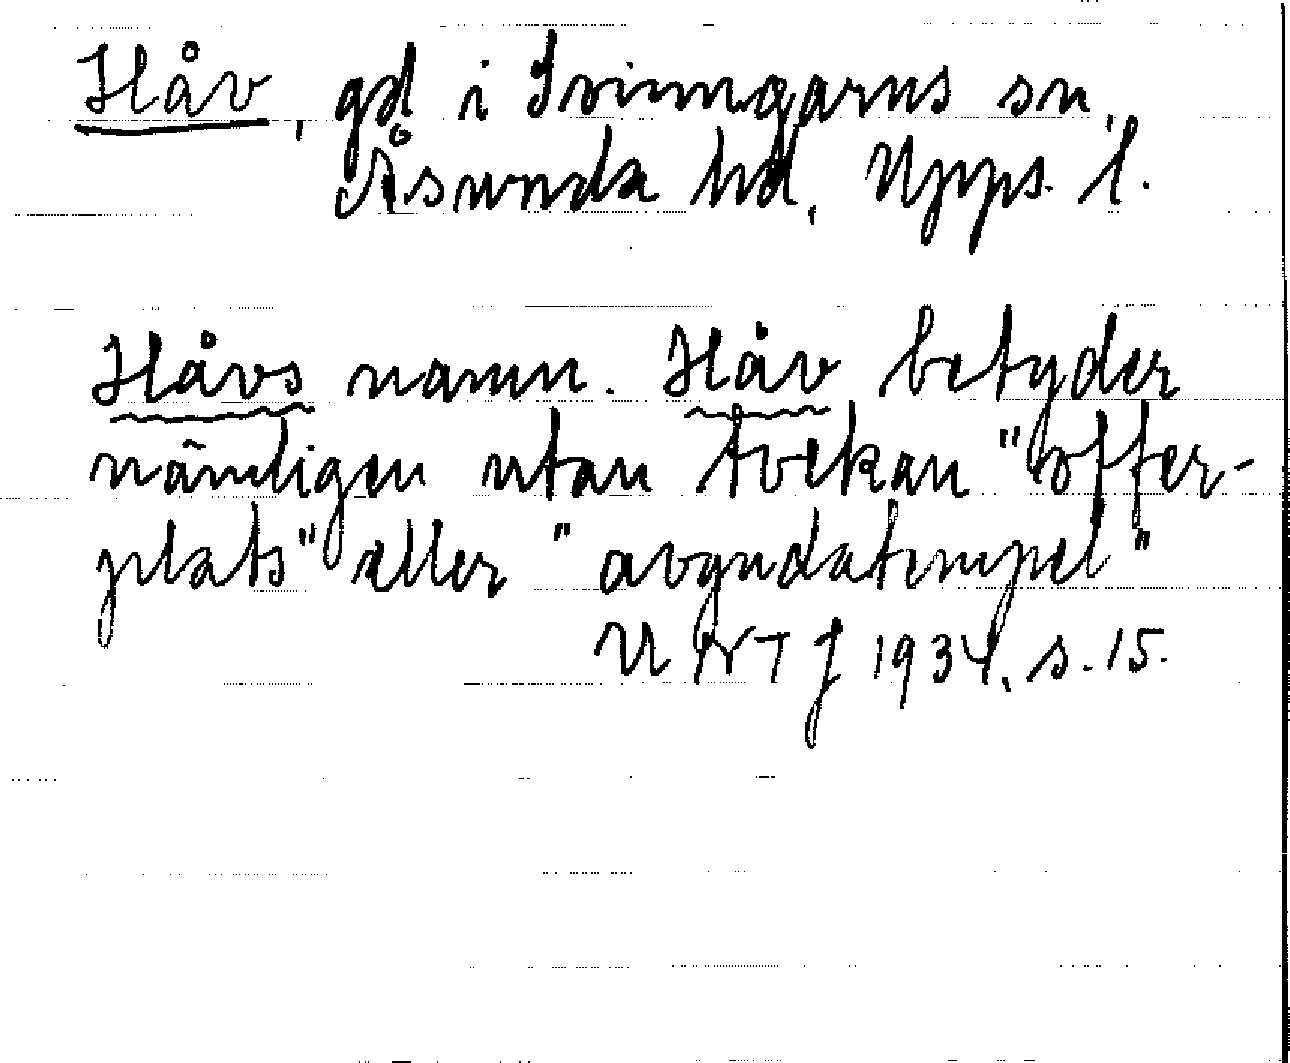 Håv, gd i Svinngarns sn,
Åsunda hd, Upps. l.
Håvs namn. Håv betyder
nämligen utan tvekan "offer-
plats" eller "avgudatempel"
UNT J 1934, s. 15.